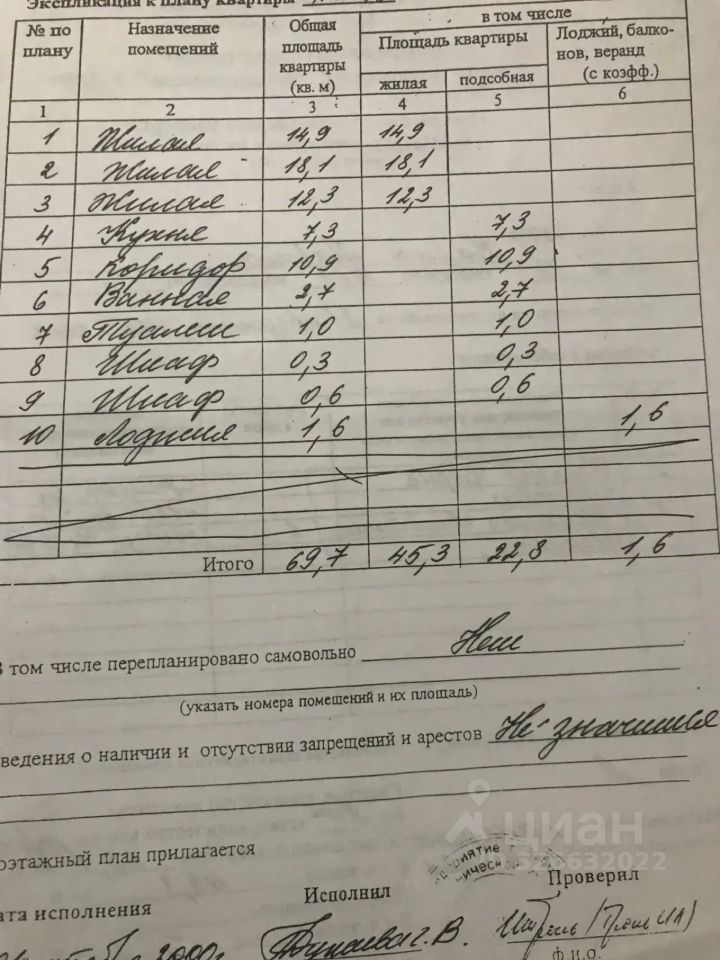 Экспликация к плану квартиры
№ по плану | Назначение помещений | Общая площадь квартиры (кв. м) | в том числе
Площадь квартиры | Лоджий, балко-нов, веранд (с коэфф.)
жилая | подсобная
1 | 2 | 3 | 4 | 5 | 6
1 Жилая 14,9 14,9
2 Жилая 18,1 18,1
3 Жилая 12,3 12,3
4 Кухня 7,3 7,3
5 Коридор 10,9 10,9
6 Ванная 2,7 2,7
7 Туалет 1,0 1,0
8 Шкаф 0,3 0,3
9 Шкаф 0,6 0,6
10 Лоджия 1,6 1,6
Итого 69,7 45,3 22,8 1,6
В том числе перепланировано самовольно Нет
(указать номера помещений и их площадь)
ведения о наличии и отсутствии запрещений и арестов Не значится
оэтажный план прилагается
циан
632022
ата исполнения Исполнил Проверил
2000г. В.
Ф.И.О.